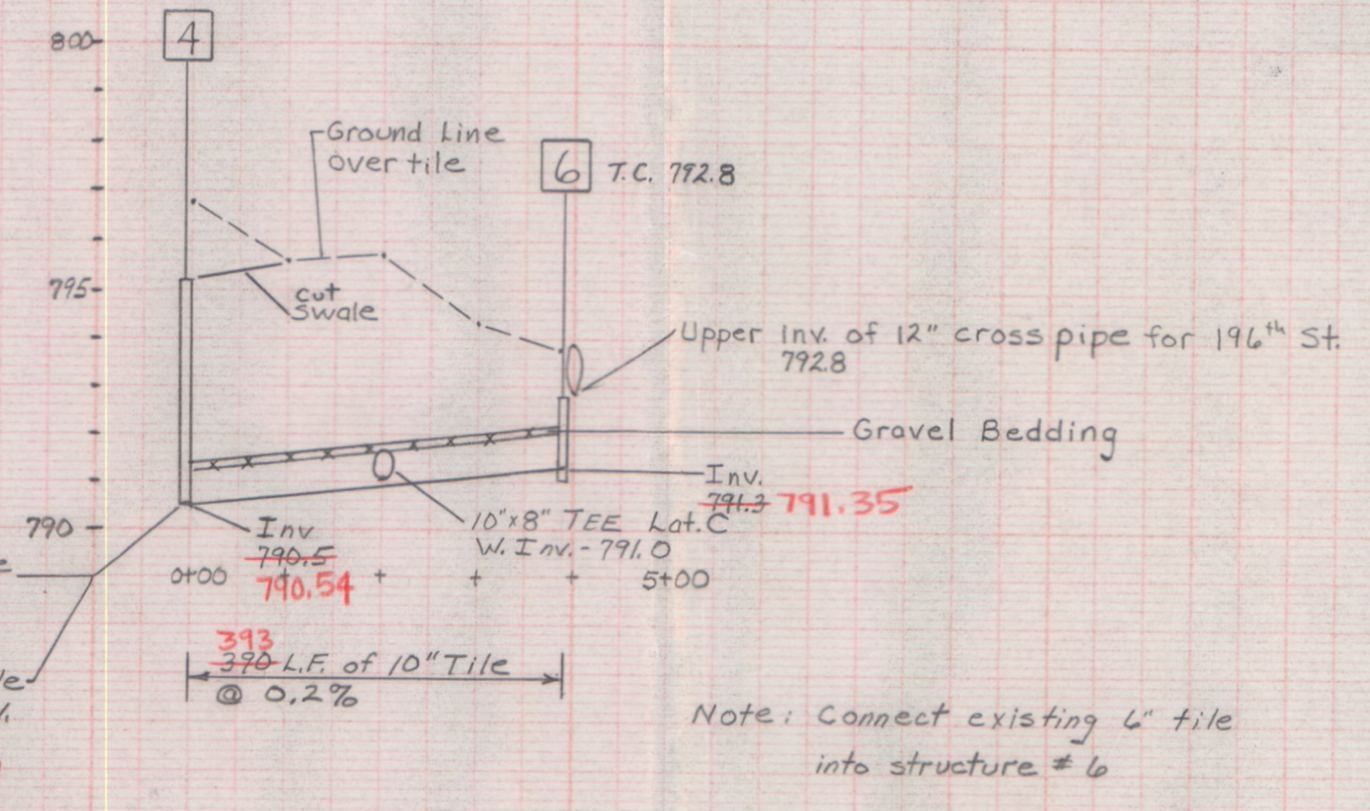 800
4
Ground Line
over tile
6 T.C. 792.8
795
cut
swale
Upper Inv. of 12" cross pipe for 196th St.
792.8
Gravel Bedding
Inv.
791.3 791.35
10"x8" TEE Lat. C
W. Inv. - 791.0
790
Inv
790.5
790.54
0+00 + + + + 5+00
393
390 L.F. of 10" Tile
@ 0.2%
Note: Connect existing 6" tile
into structure # 6